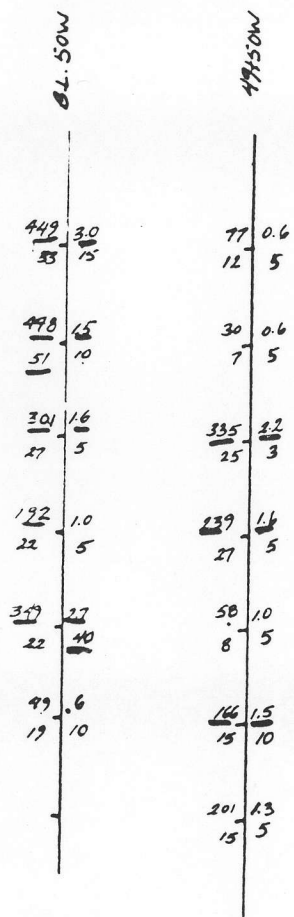 BL. 50W
449 3.0
33 15
498 1.5
51 10
301 1.6
27 5
192 1.0
22 5
349 2.7
22 40
89 .6
19 10
49+50W
77 0.6
12 5
30 0.6
7 5
335 2.2
25 3
239 1.6
27 5
58 1.0
8 5
166 1.5
15 10
201 1.3
15 5